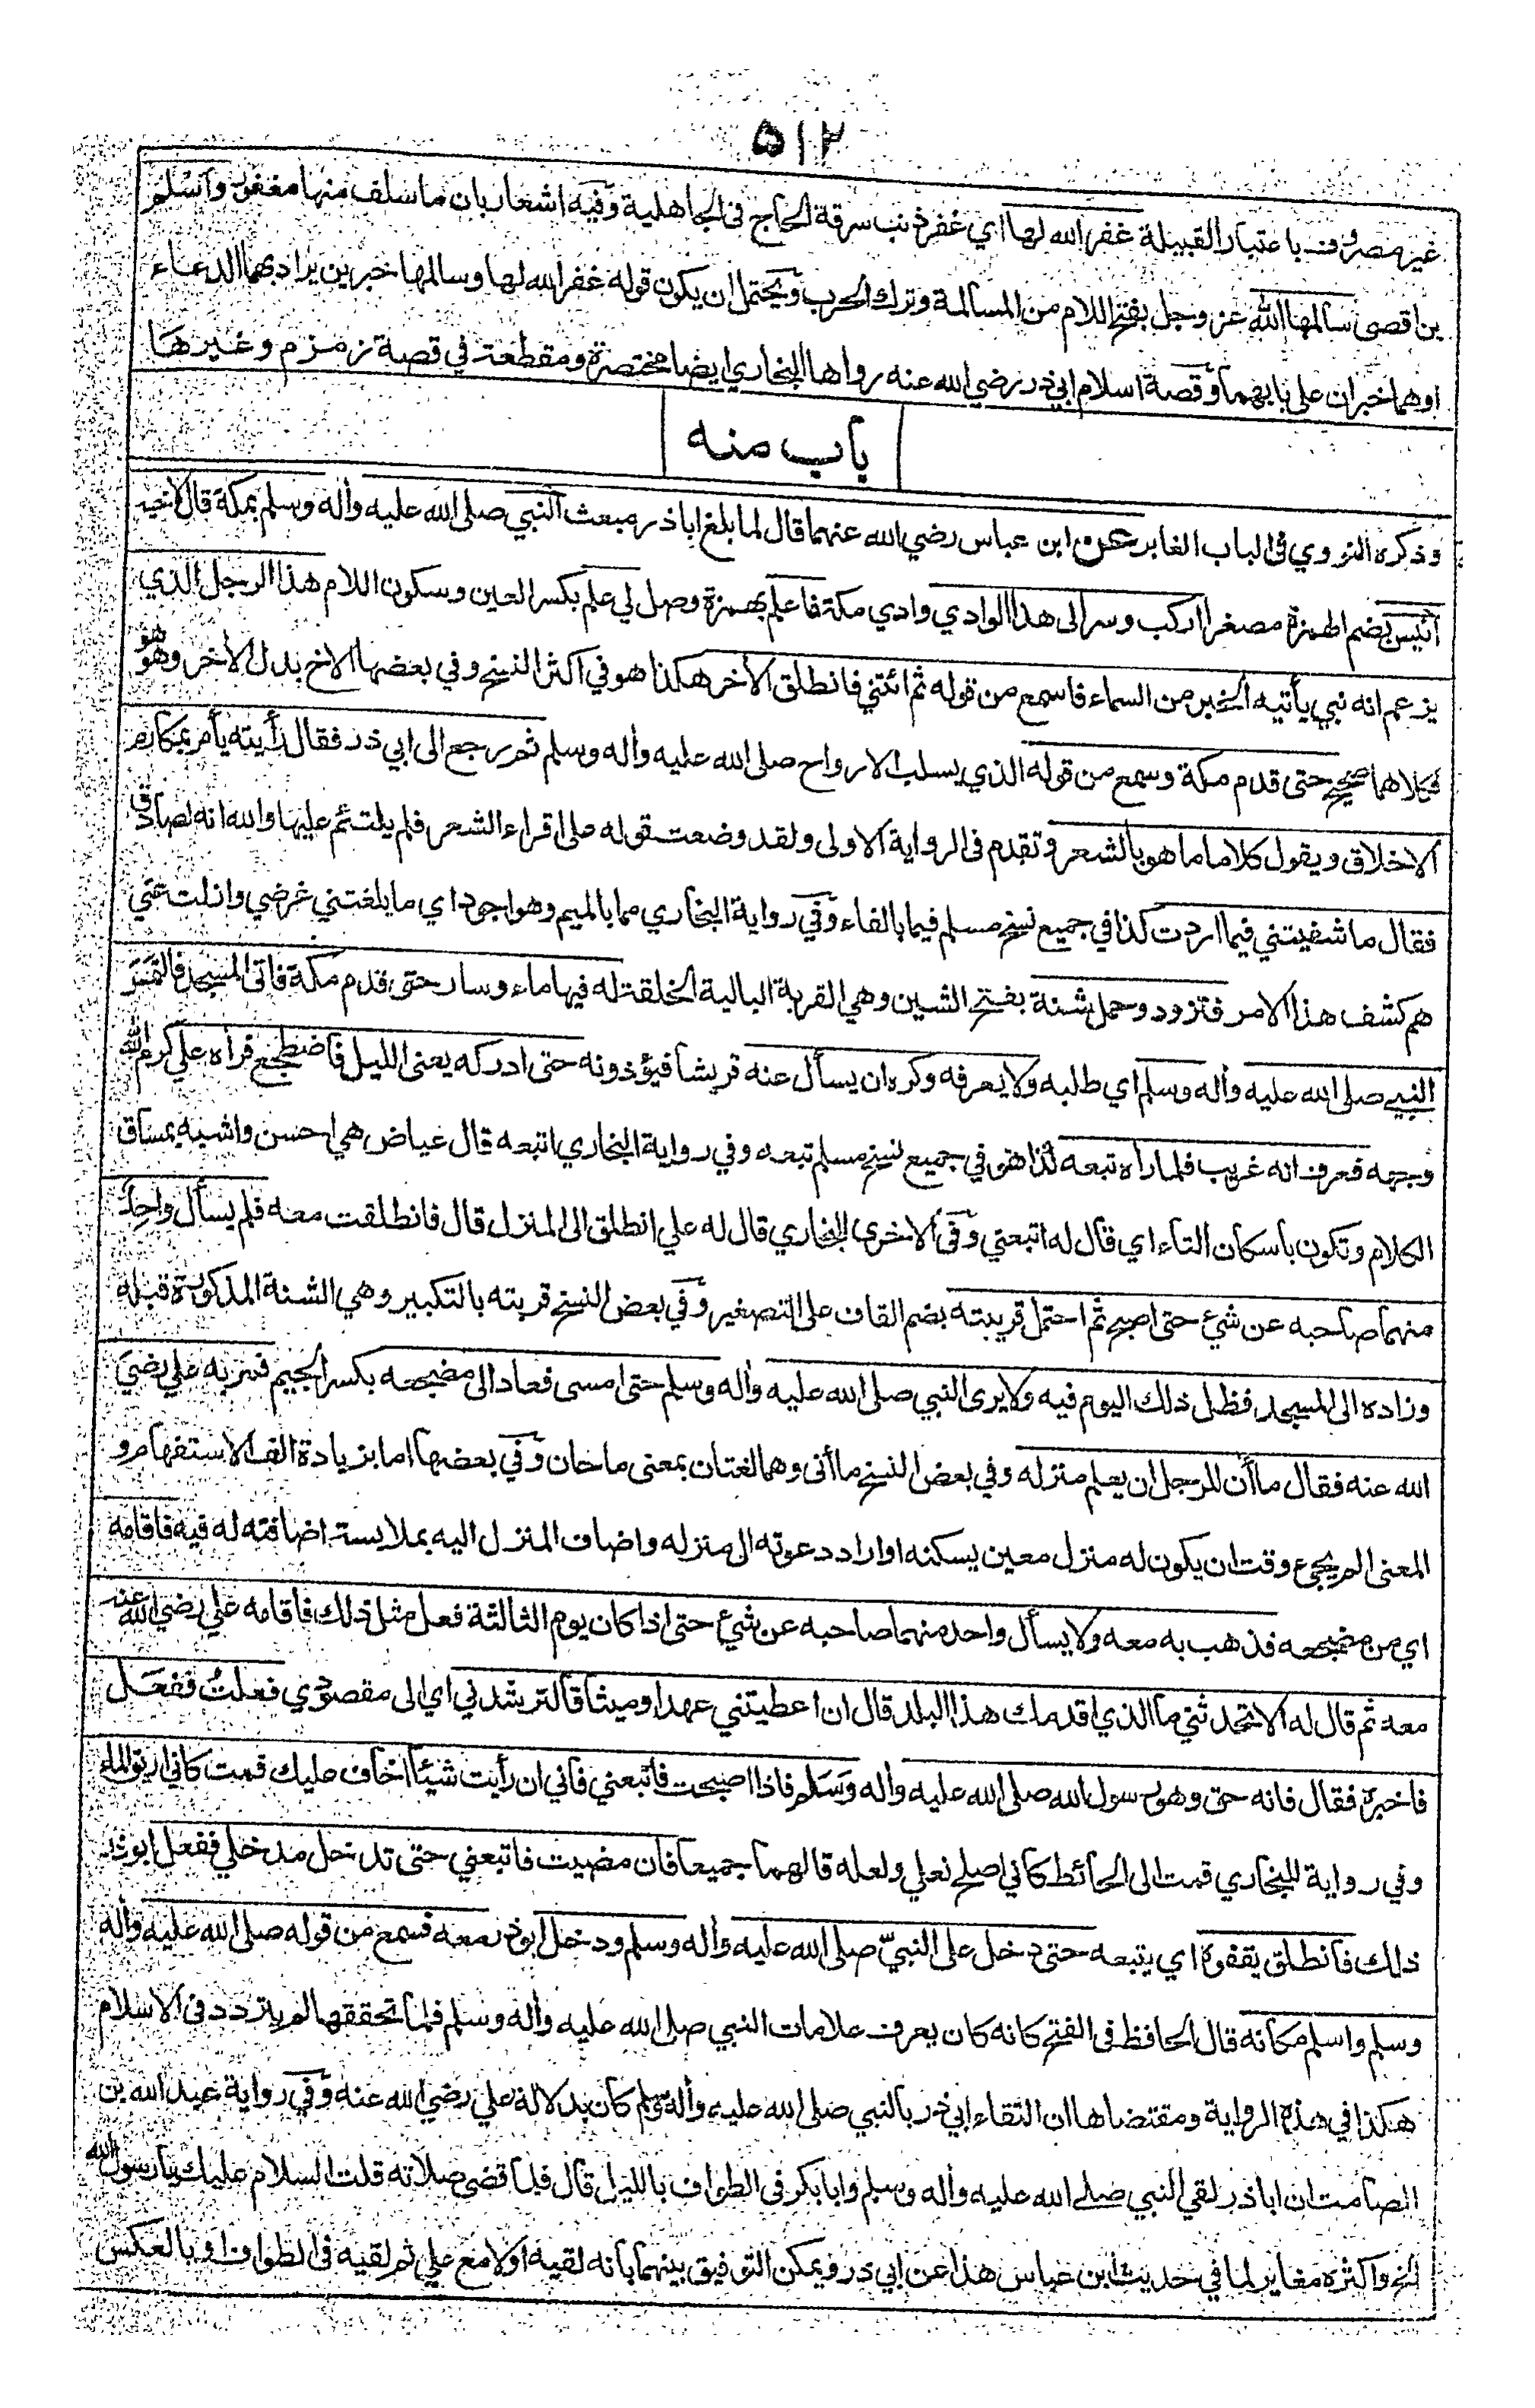 ٥١٢
غير مصروف باعتبار القبيلة غفر الله لها اي غفر ذنب سرقة الحاج فى الجاهلية وفيه اشعار بان ما سلف منها مغفور واسلم
بن اقصى سالمها الله عز وجل بفتح اللام من المسالمة وترك الحرب ويحتمل ان يكون قوله غفر الله لها وسالمها خبرين يراد بهما الدعاء
اوهما خبران على بابهما وقصة اسلام ابي ذر رضي الله عنه رواها البخاري ايضا مختصرة ومقطعة في قصة زمزم وغيرها
باب منه
وذكره النووي فى الباب الغابر عن ابن عباس رضي الله عنهما قال لما بلغ اباذر مبعث النبي صلى الله عليه وأله وسلم بمكة قال لاخيه
أنيس بضم الهمزة مصغرا اركب وسر الى هذا الوادي وادي مكة فاعلم بهمزة وصل لي علم بكسر العين وسكون اللام هذا الرجل الذي
يزعم انه نبي يأتيه الخبر من السماء فاسمع من قوله ثم ائتني فانطلق الأخر هكذا هو في اكثر النسخ وفي بعضها الاخ بدل الأخر وهو هو
فكلاهما صحيح حتى قدم مكة وسمع من قوله الذي يسلب الارواح صلى الله عليه وأله وسلم ثم رجع الى ابي ذر فقال رأيته يأمر بمكارم
الاخلاق ويقول كلاما ما هو بالشعر وتقدم فى الرواية الاولى ولقد وضعت قوله على اقراء الشعر فلم يلتئم عليها والله انه لصادق
فقال ما شفيتني فيما اردت كذا في جميع نسخ مسلم فيما بالفاء وفي رواية البخاري مما بالميم وهو اجود اي ما بلغتني غرضي وازلت عني
هم كشف هذا الامر فتزود وحمل شنة بفتح الشين وهي القربة البالية الخلقة له فيها ماء وسار حتى قدم مكة فاتى المسجد فالتمس
النبي صلى الله عليه وأله وسلم اي طلبه ولا يعرفه وكره ان يسأل عنه قريشا فيؤذونه حتى ادركه يعنى الليل فاضطجع فرأه علي كرم الله
وجهه فعرف انه غريب فلما رأه تبعه كذا هو في جميع نسخ مسلم تبعه وفي رواية البخاري اتبعه قال عياض هي احسن واشبه بمساق
الكلام وتكون باسكان التاء اي قال له اتبعني وفى الاخرى للبخاري قال له علي انطلق الى المنزل قال فانطلقت معه فلم يسأل واحد
منهما صاحبه عن شئ حتى اصبح ثم احتمل قريبته بضم القاف على التصغير وفي بعض النسخ قربته بالتكبير وهي الشنة المذكورة قبله
وزاده الى المسجد فظل ذلك اليوم فيه ولا يرى النبي صلى الله عليه وأله وسلم حتى امسى فعاد الى مضجعه بكسر الجيم فمر به علي رضي
الله عنه فقال ما أن للرجل ان يعلم منزله وفي بعض النسخ ما أنى وهما لغتان بمعنى ما حان وفي بعضها اما بزيادة الف الاستفهام و
المعنى الم يجئ وقت ان يكون له منزل معين يسكنه او اراد دعوته الى منزله واضاف المنزل اليه بملابسة اضافته له فيه فاقامه
اي من مضجعه فذهب به معه ولا يسأل واحد منهما صاحبه عن شئ حتى اذا كان يوم الثالثة فعل مثل ذلك فاقامه علي رضي الله عنه
معه ثم قال له الا تحدثني ما الذي اقدمك هذا البلد قال ان اعطيتني عهدا وميثاقا لترشدني اي الى مقصودي فعلت ففعل
فاخبره فقال فانه حق وهو رسول الله صلى الله عليه وأله وسلم فاذا اصبحت فاتبعني فاني ان رأيت شيئا اخاف عليك قمت كاني اريق الماء
وفي رواية للبخاري قمت الى الحائط كاني اصلح نعلي ولعله قالهما جميعا فان مضيت فاتبعني حتى تدخل مدخلي ففعل ابوذر
ذلك فانطلق يقفوه اي يتبعه حتى دخل على النبي صلى الله عليه وأله وسلم ودخل ابوذر معه فسمع من قوله صلى الله عليه وأله
وسلم واسلم مكانه قال الحافظ فى الفتح كانه كان يعرف علامات النبي صلى الله عليه وأله وسلم فلما تحققها لم يتردد فى الاسلام
هكذا في هذه الرواية ومقتضاها ان التقاء ابي ذر بالنبي صلى الله عليه وأله وسلم كان بدلالة علي رضي الله عنه وفي رواية عبد الله بن
الصامت ان اباذر لقي النبي صلى الله عليه وأله وسلم وابابكر فى الطواف بالليل قال فلما قضى صلاته قلت السلام عليك يا رسول الله
الخ واكثره مغاير لما في حديث ابن عباس هذا عن ابي ذر ويمكن التوفيق بينهما بانه لقيه اولا مع علي ثم لقيه فى الطواف او بالعكس